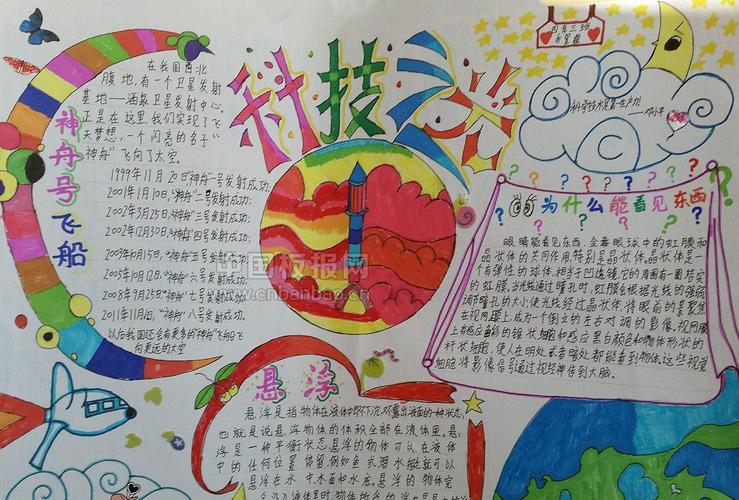 科技之光
四年三班
科学技术是第一生产力
——邓小平
神舟号飞船
在我国西北
腹地,有一个卫星发射
基地——酒泉卫星发射中心,
正是在这里,我们实现了飞
天梦想,一个闪亮的名字“
神舟”飞向了太空。
1999年11月20日“神舟”一号发射成功;
2001年1月10日,“神舟”二号发射成功;
2002年3月25日“神舟”三号发射成功;
2002年12月30日“神舟”四号发射成功;
2003年10月15日“神舟”五号发射成功;
2005年10月12日“神舟”六号发射成功;
2008年9月25日“神舟”七号发射成功;
2011年11月1日,“神舟”八号发射成功.
以后我国还会有更多的“神舟”飞船飞
向更远的太空
中国板报网
www.cnbanbao.cn
为什么能看见东西
眼睛能看见东西,全靠眼球中的虹膜和
晶状体的共同作用,特别是晶状体,晶状体是一
个有弹性的球体,相当于凹透镜,它的周围有一圈特定
的虹膜,当光线通过瞳孔时,虹膜会根据光线的强弱
调节瞳孔的大小,使光线经过晶状体,将眼前的景聚焦
在视网膜上,成为一个倒立的左右对调的影像,视网膜
上有感应色彩的锥状细胞和感应黑白颜色和物体形状的
杆状细胞,使人在明处或者暗处都能看到物体,这些视觉
细胞将影像信号通过视经神传到大脑.
悬浮
悬浮是指物体在液体中即不下沉,不露出液面的一种状态,
也就是说悬浮物体的体积全部在液体里。悬
浮是一种平衡状态,悬浮的物体可以在液体
中的任何位置保留,例如鱼或潜水艇就可以
悬浮在水中,木面和水底,悬浮的物体完